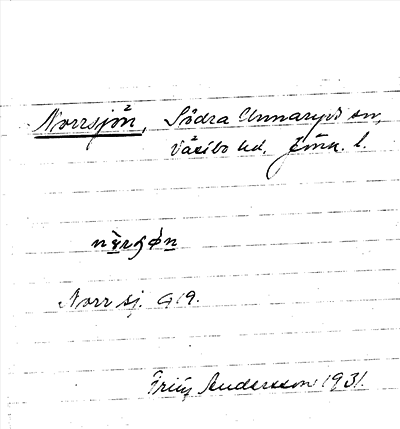 Norrsjön, Södra Unnaryd sn,
Västbo hd. Jönk. l.
Norr sj. G 19.
Andersson 1931.